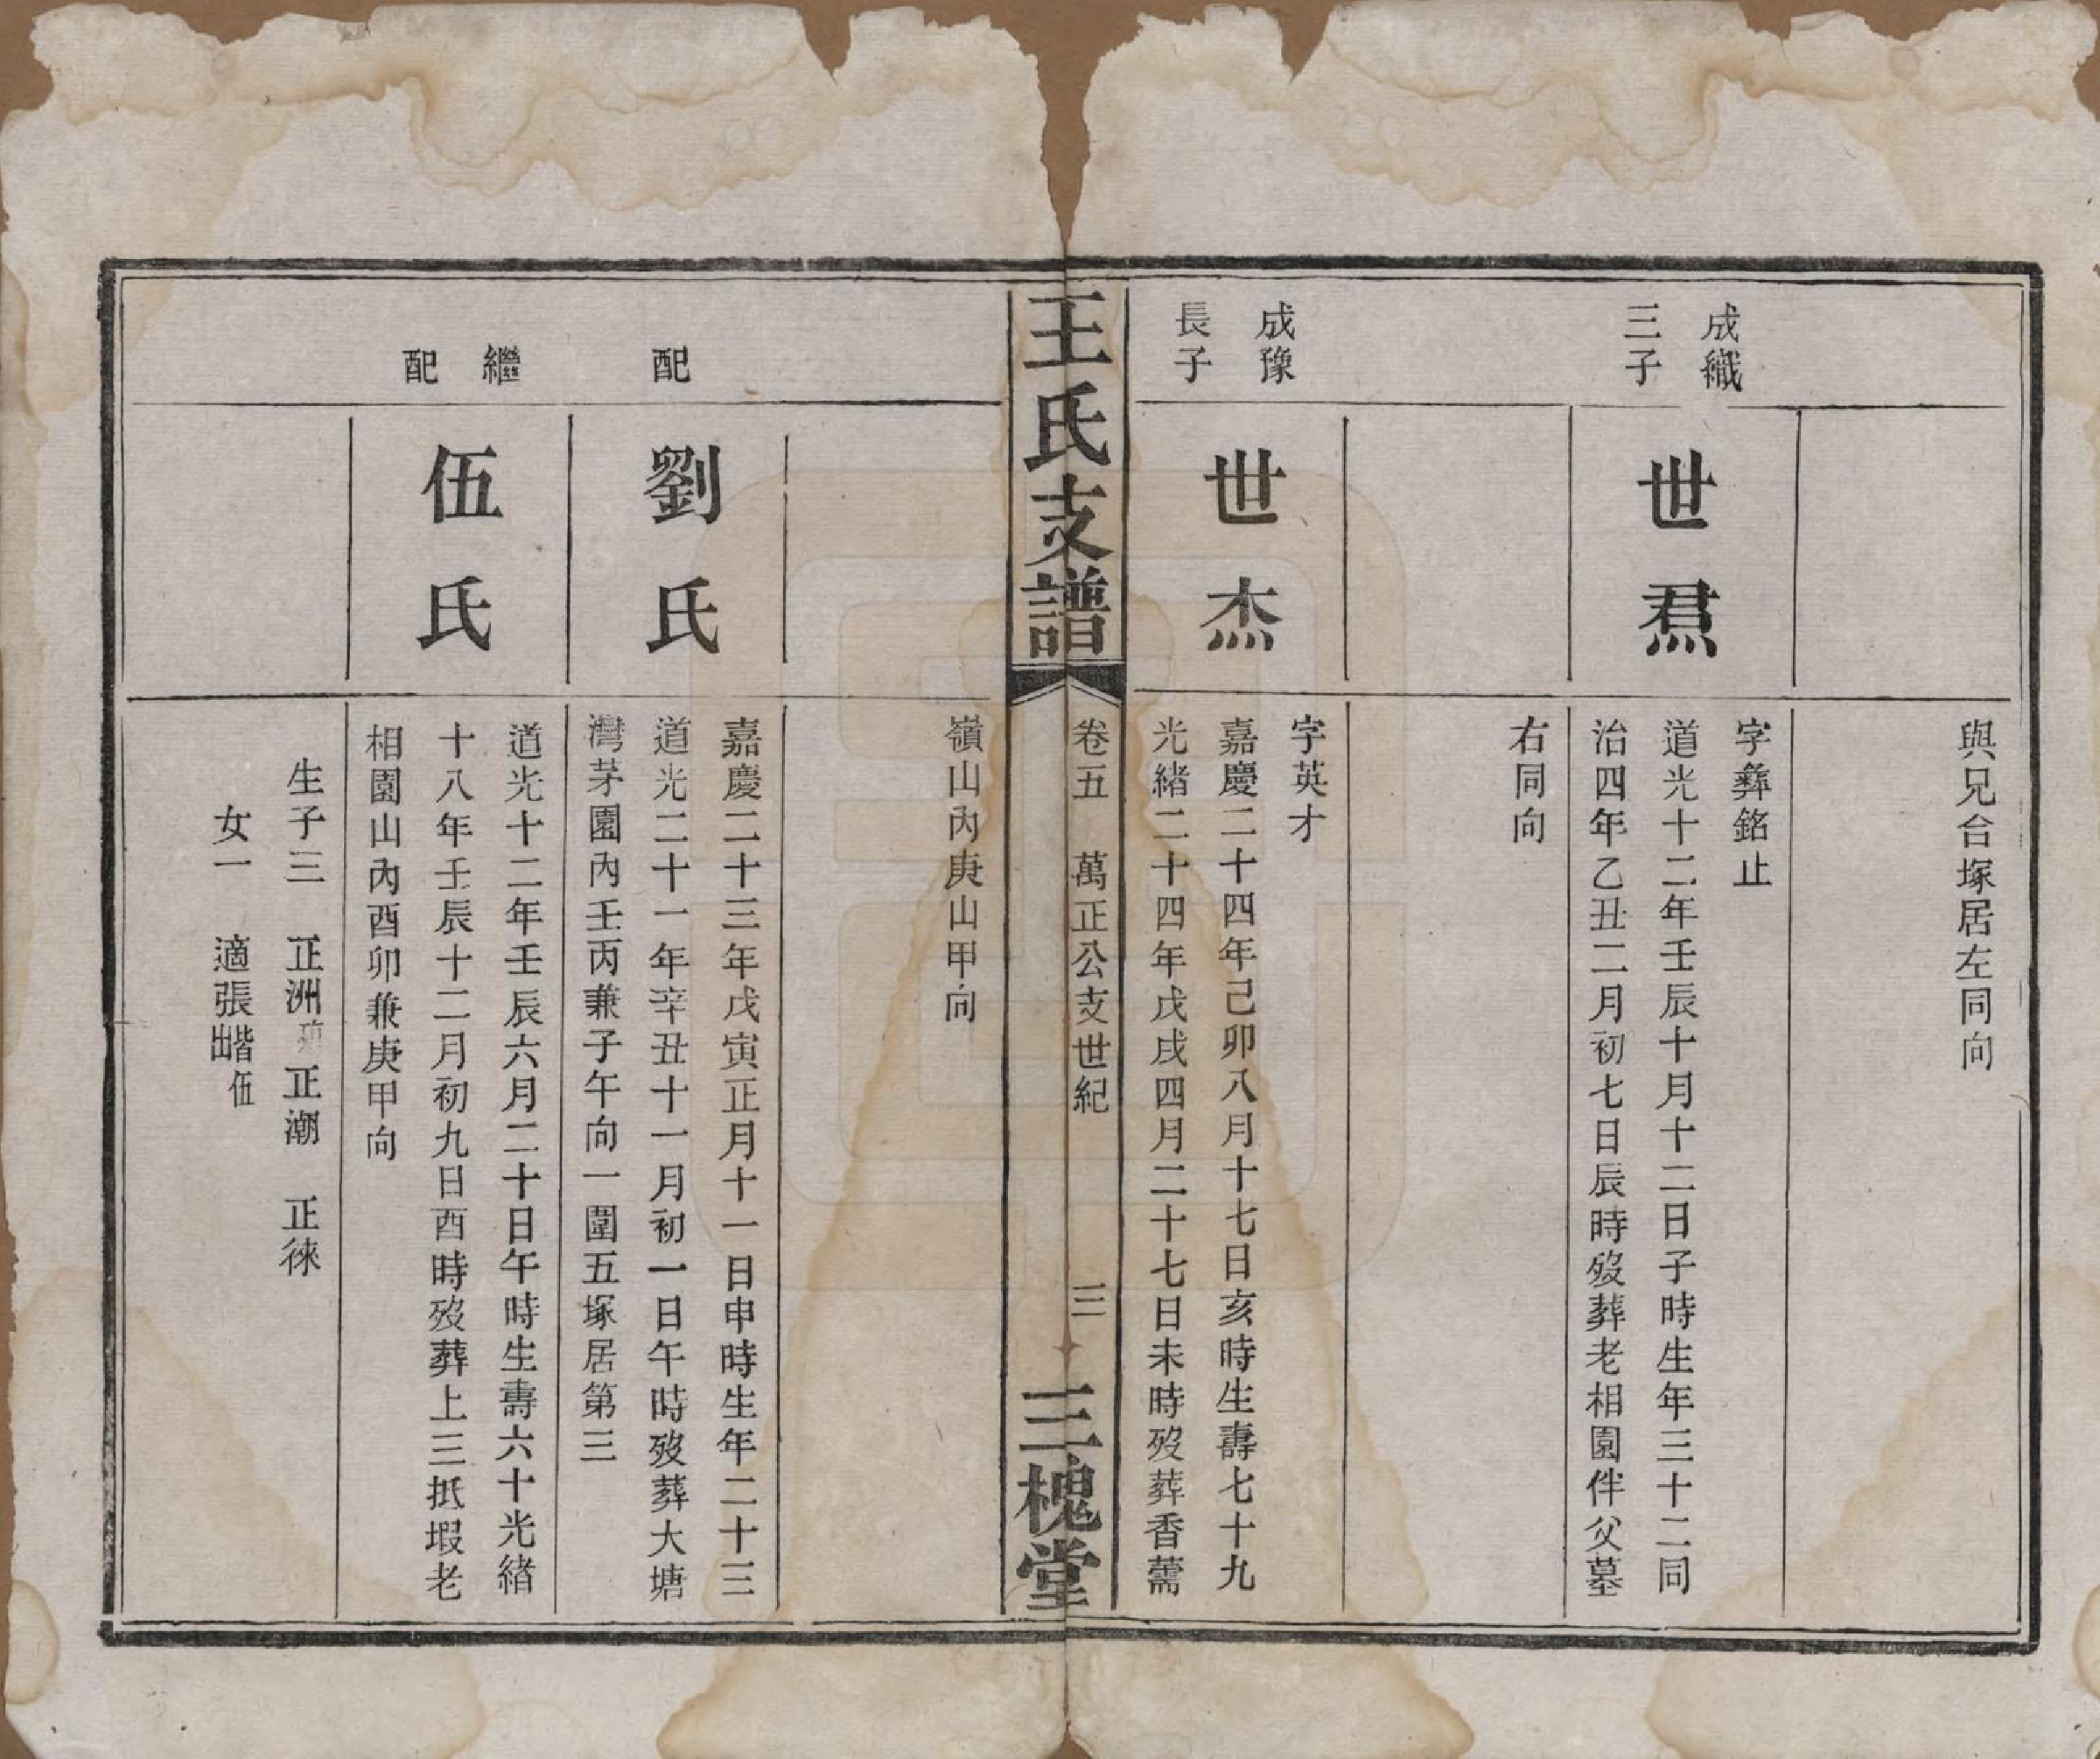 與兄合塚居左同向
成纖
三子
世焄
字彝銘止
道光十二年壬辰十月十二日子時生年三十二同
治四年乙丑二月初七日辰時歿葬老相園伴父墓
右同向
成豫
長子
世杰
字英才
嘉慶二十四年己卯八月十七日亥時生壽七十九
光緒二十四年戊戌四月二十七日未時歿葬香薷
王氏支譜
卷五 萬正公支世紀
三
三槐堂
嶺山內庚山甲向
配
劉氏
嘉慶二十三年戊寅正月十一日申時生年二十三
道光二十一年辛丑十一月初一日午時歿葬大塘
灣茅園內壬丙兼子午向一圍五塚居第三
繼
配
伍氏
道光十二年壬辰六月二十日午時生壽六十光緒
十八年壬辰十二月初九日酉時歿葬上三抵塅老
相園山內酉卯兼庚甲向
生子三 正洲 正潮 正徠
女一 適張喈
伍
出